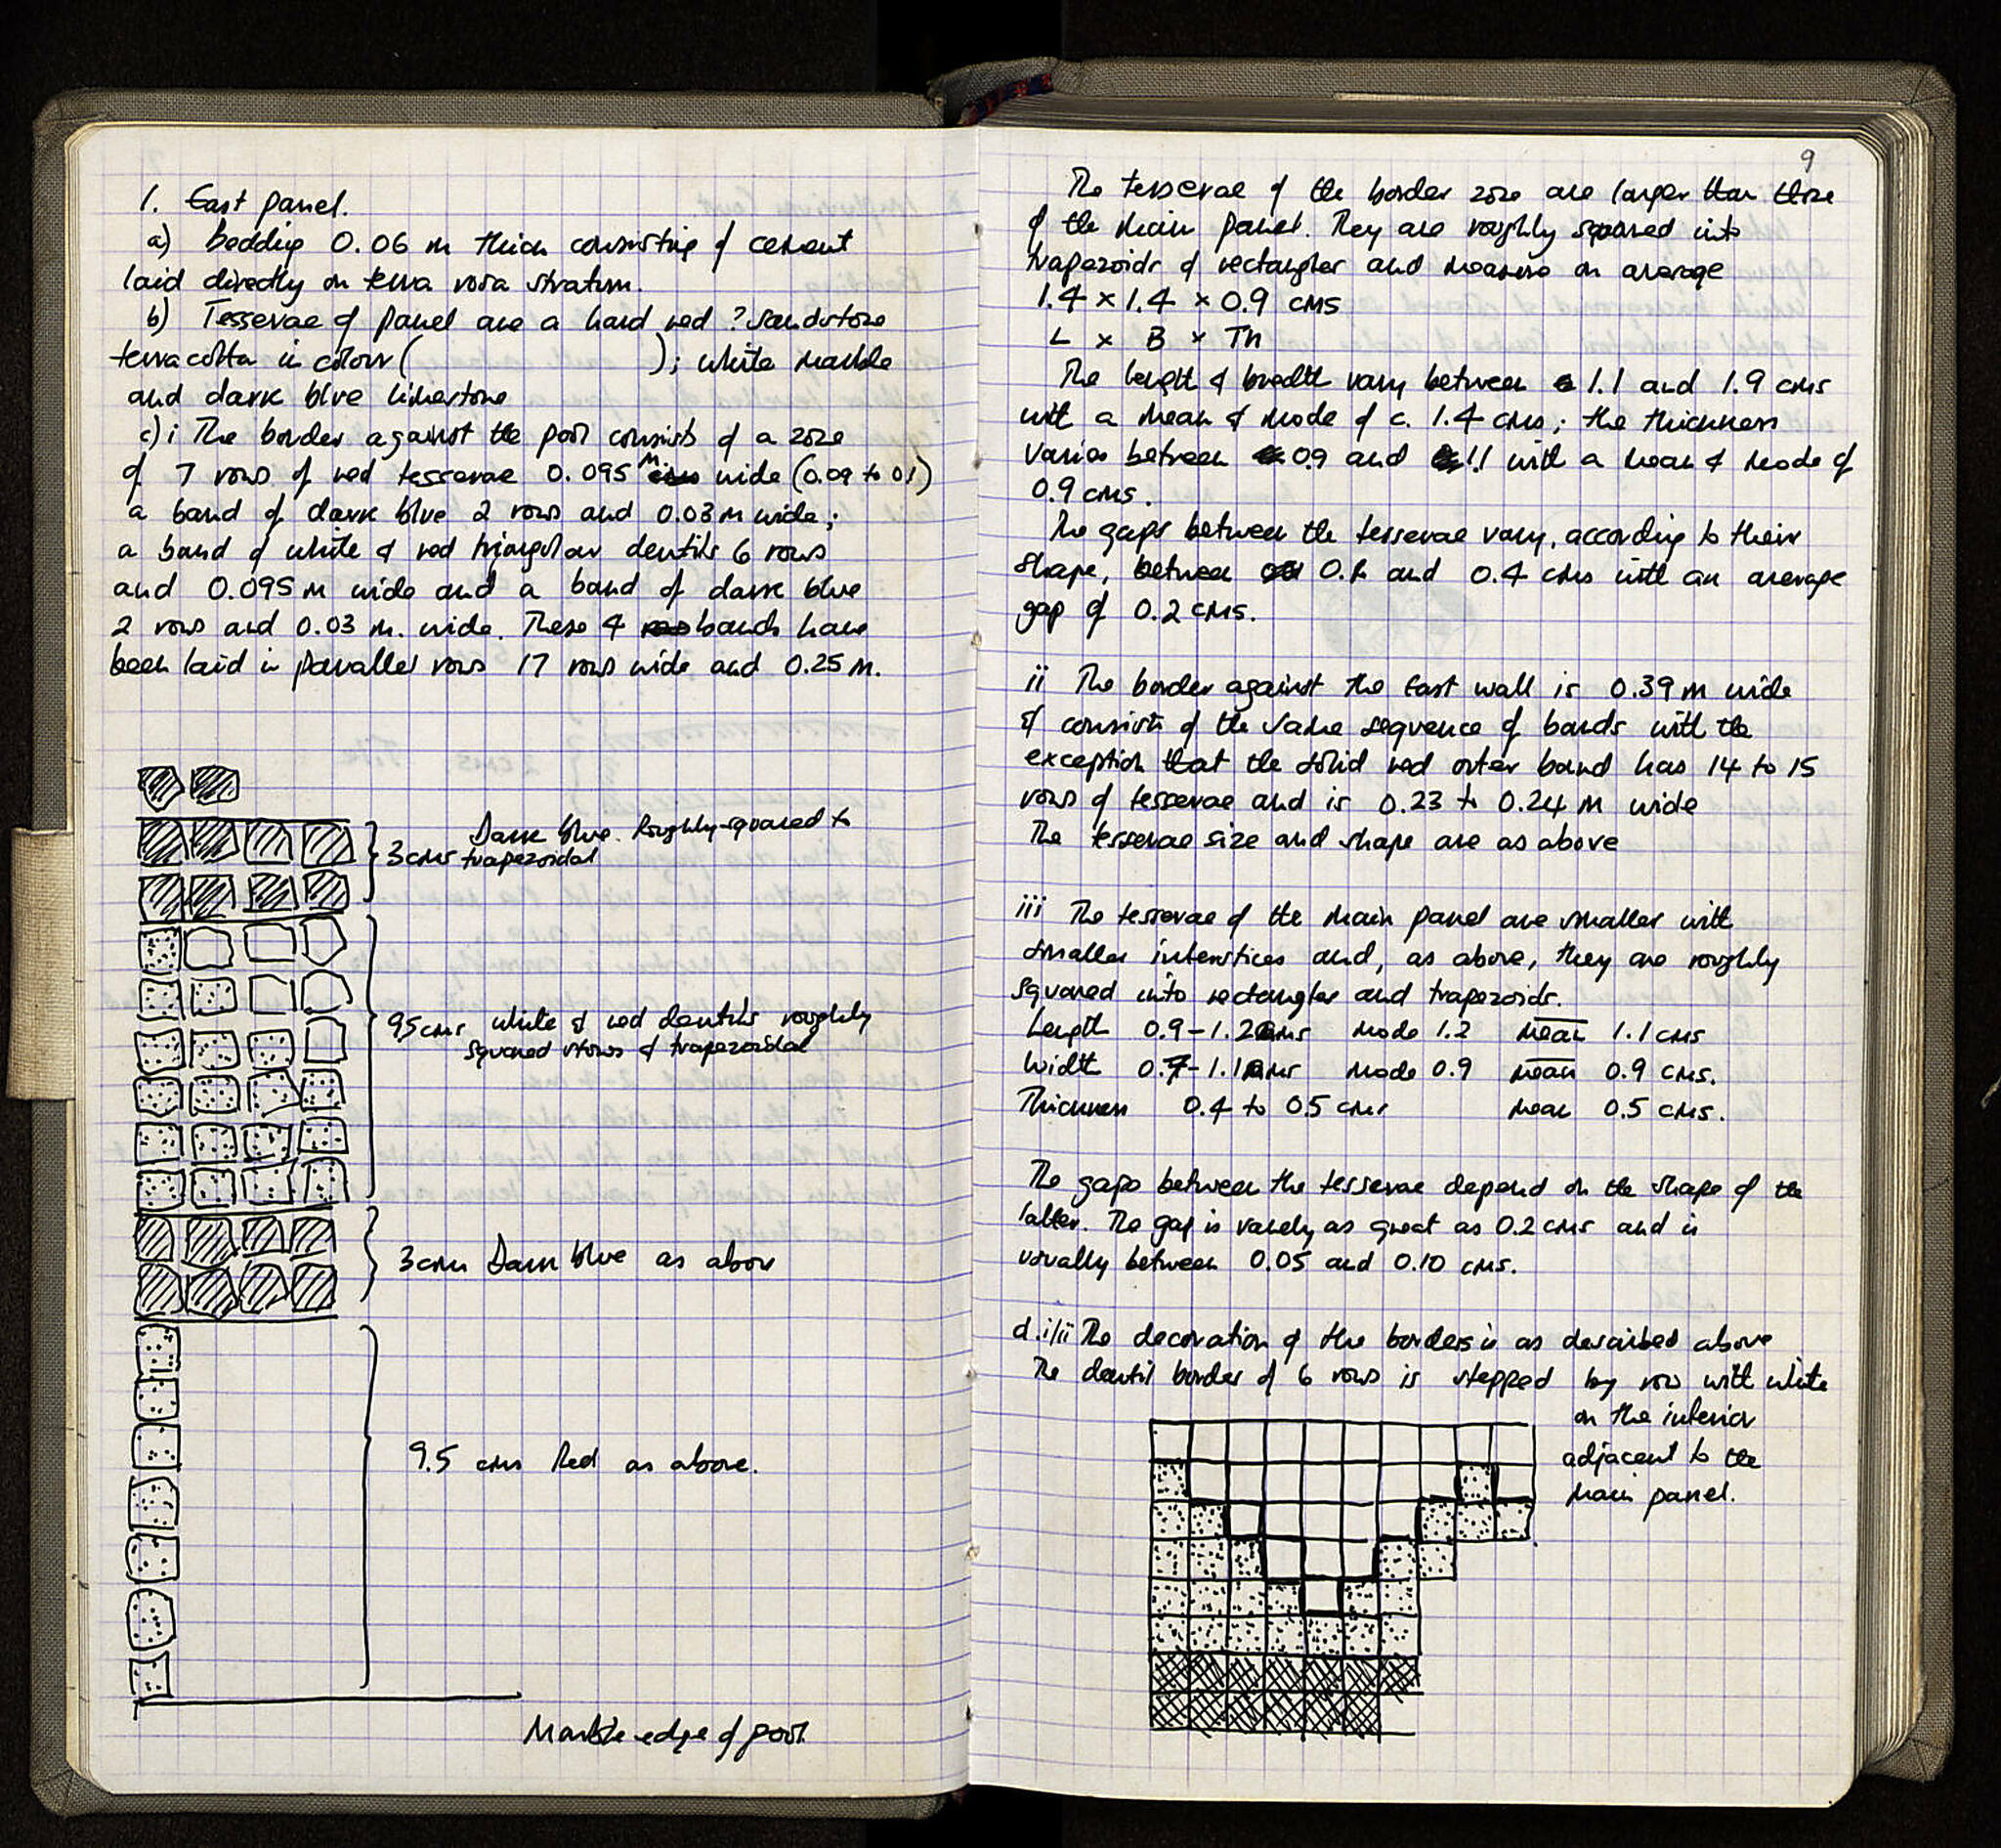 1. East panel.
a) Bedding 0.06 m thick consisting of cement
laid directly on terra rosa stratum.
b) Tesserae of panel are a hard red ? sandstone
terracotta in colour ( ); white marble
and dark blue limestone
c) i The border against the pool consists of a zone
of 7 rows of red tesserae 0.095 M wide (0.09 to 0.1)
a band of dark blue 2 rows and 0.03 M wide;
a band of white & red triangular dentils 6 rows
and 0.095 M wide and a band of dark blue
2 rows and 0.03 M. wide. These 4 bands have
been laid in parallel rows 17 rows wide and 0.25 M.
Dark blue. Roughly-squared to
3 cms trapezoidal
9.5 cms white & red dentils roughly
squared stones & trapezoidal
3 cms Dark blue as above
9.5 cms Red as above.
Marble edge of pool
9
The tesserae of the border zone are larger than those
of the main panel. They are roughly squared into
trapezoids & rectangles and measure on average
1.4 × 1.4 × 0.9 cms
L × B × Th
The length & breadth vary between 1.1 and 1.9 cms
with a mean & mode of c. 1.4 cms; the thickness
varies between 0.9 and 1.1 with a mean & mode of
0.9 cms.
The gaps between the tesserae vary, according to their
shape, between 0.1 and 0.4 cms with an average
gap of 0.2 cms.
ii The border against the East wall is 0.39 m wide
& consists of the same sequence of bands with the
exception that the solid red outer band has 14 to 15
rows of tesserae and is 0.23 to 0.24 M wide
The tesserae size and shape are as above
iii The tesserae of the main panel are smaller with
smaller interstices and, as above, they are roughly
squared into rectangles and trapezoids.
Length 0.9 - 1.2 cms Mode 1.2 mean 1.1 cms
Width 0.7 - 1.1 cms Mode 0.9 mean 0.9 cms.
Thickness 0.4 to 0.5 cms mean 0.5 cms.
The gaps between the tesserae depend on the shape of the
latter. The gap is rarely as great as 0.2 cms and is
usually between 0.05 and 0.10 cms.
d. i/ii The decoration of the borders is as described above
The dentil border of 6 rows is stepped by row with white
on the interior
adjacent to the
main panel.